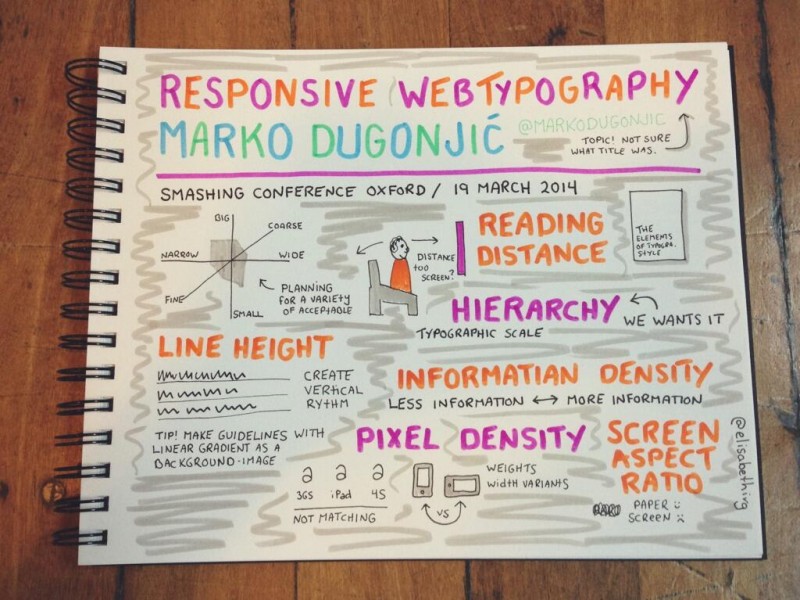 RESPONSIVE WEBTYPOGRAPHY
MARKO DUGONJIĆ
@MARKODUGONJIC
TOPIC! NOT SURE
WHAT TITLE WAS.
SMASHING CONFERENCE OXFORD / 19 MARCH 2014
BIG
COARSE
NARROW
WIDE
FINE
SMALL
PLANNING
FOR A VARIETY
OF ACCEPTABLE
DISTANCE
TOO
SCREEN?
READING
DISTANCE
THE
ELEMENTS
OF TYPOGRA.
STYLE
HIERARCHY
TYPOGRAPHIC SCALE
WE WANTS IT
LINE HEIGHT
CREATE
VERTICAL
RYTHM
TIP! MAKE GUIDELINES WITH
LINEAR GRADIENT AS A
BACKGROUND-IMAGE
INFORMATIAN DENSITY
LESS INFORMATION ↔ MORE INFORMATION
PIXEL DENSITY
a a a
3GS iPad 4S
NOT MATCHING
VS
WEIGHTS
Width VARIANTS
SCREEN
ASPECT
RATIO
PAPER :)
SCREEN :(
@elisabethirg